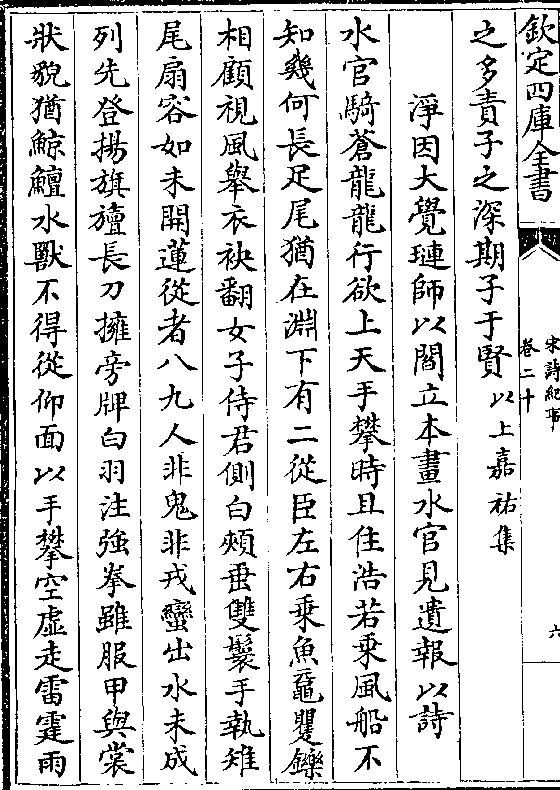 欽定四庫全書
宋詩紀事
卷二十
六
之多責子之深期子于賢以上嘉祐集
淨因大覺璉師以閻立本畫水官見遺報以詩
水官騎蒼龍龍行欲上天手攀時且住浩若乘風船不
知幾何長足尾猶在淵下有二從臣左右乘魚黿矍鑠
相顧視風舉衣袂翻女子侍君側白頰垂雙鬟手執雉
尾扇容如未開蓮從者八九人非鬼非戎蠻出水未成
列先登揚旗旜長刀擁旁牌白羽注強拳雖服甲與裳
狀貌猶鯨鱣水獸不得從仰面以手攀空虛走雷霆雨